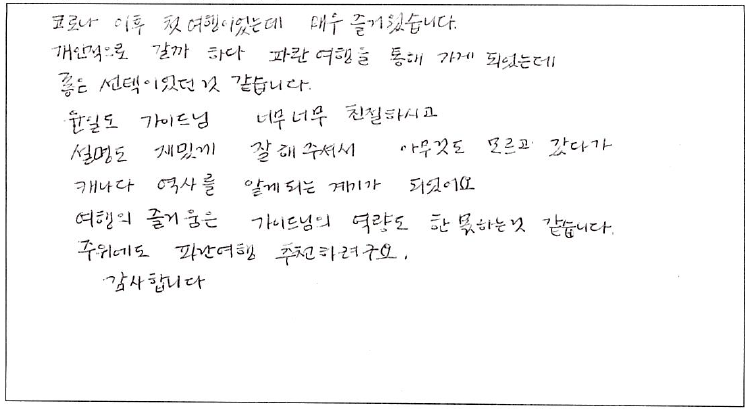 코로나 이후 첫 여행이었는데 매우 즐거웠습니다.
개인적으로 갈까 하다 파란여행을 통해 가게 되었는데
좋은 선택이었던 것 같습니다.
윤일도 가이드님 너무너무 친절하시고
설명도 재밌게 잘 해주셔서 아무것도 모르고 갔다가
캐나다 역사를 알게되는 계기가 되었어요
여행의 즐거움은 가이드님의 역량도 한 몫하는것 같습니다.
주위에도 파란여행 추천하려구요.
감사합니다